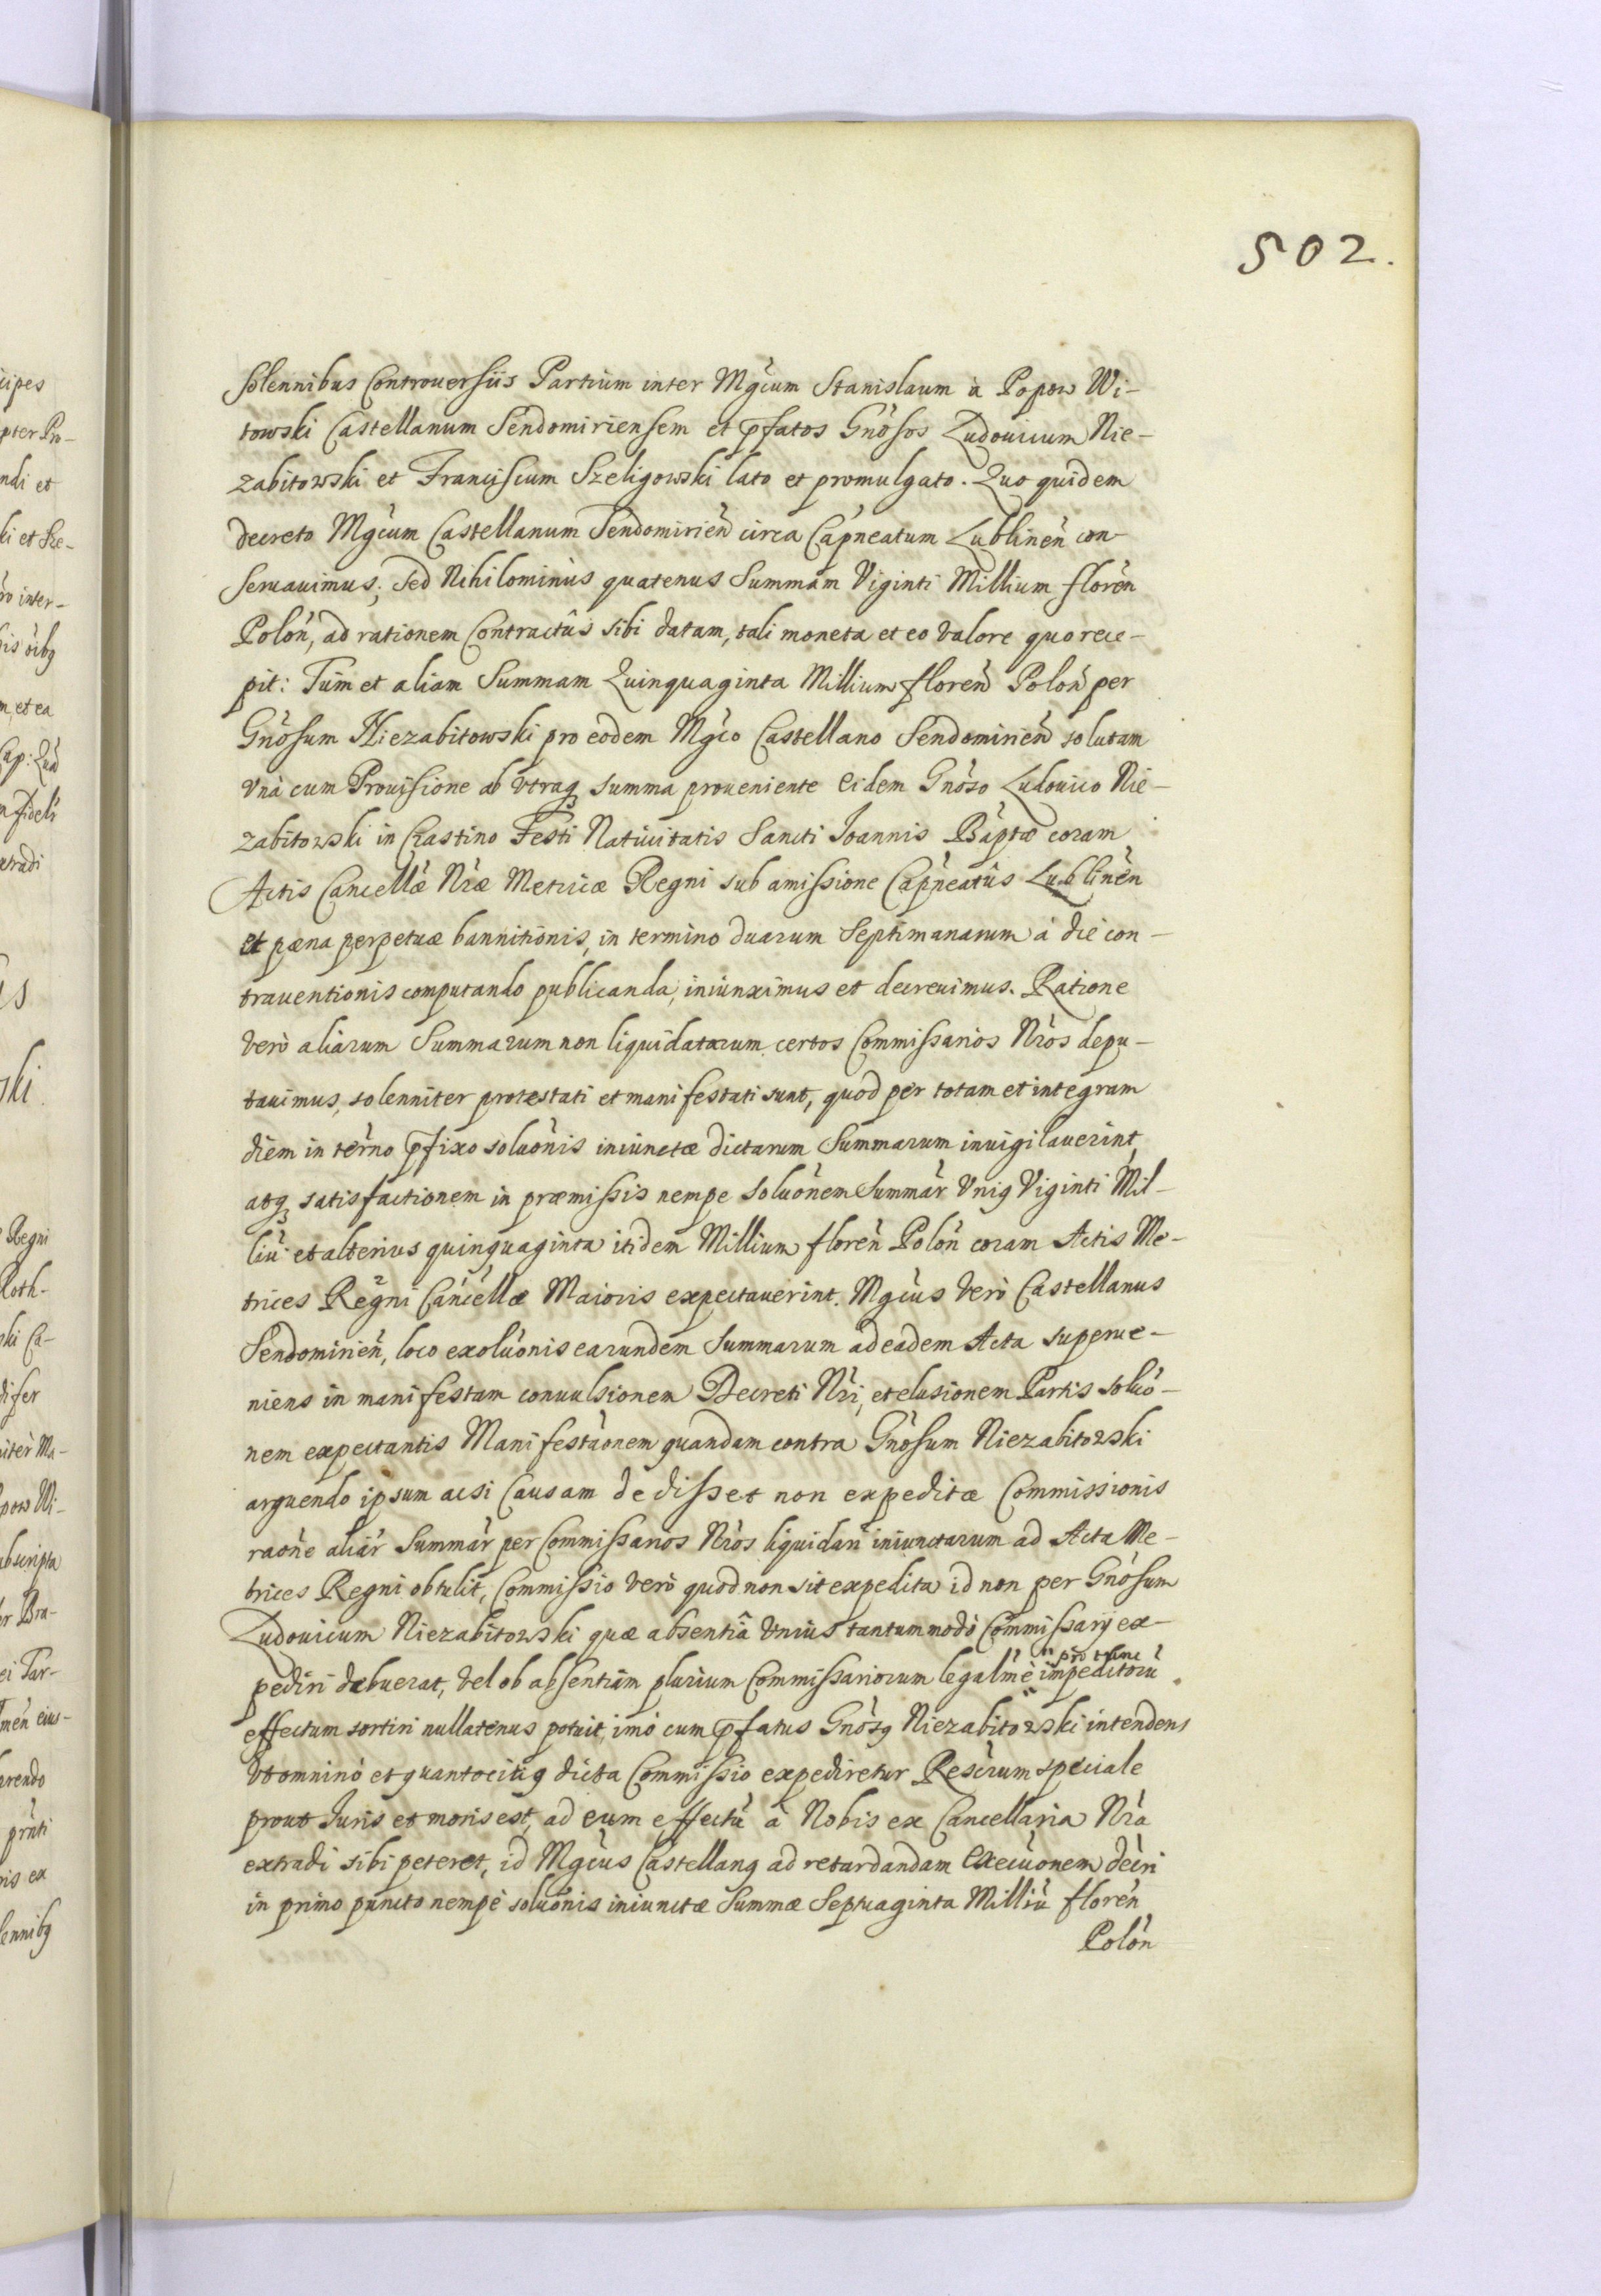 502.
solennibus Controuersiis Partium inter Mgcum Stanislaum à Popow Wi-
towski Castellanum Sendomiriensem et pfatos Gnosos Ludouicum Nie-
zabitowski et Franciscum Szeligowski lato et promulgato. Quo quidem
decreto Mgcum Castellanum Sendomirien circa Capneatum Lublinen con-
seruauimus; sed Nihilominus quatenus Summam Viginti Millium floren
Polon, ad rationem Contractûs sibi datam, tali moneta et eo valore quo rece-
pit: Tum et aliam Summam Quinquaginta Millium floren Polon per
Gnosum Niezabitowski pro eodem Mgco Castellano Sendomirien solutam
vnà cum Prouisione ab vtraq summa proueniente eidem Gnoso Ludouico Nie-
zabitowski in Crastino Festi Natiuitatis Sancti Ioannis Baptæ coram
Actis Cancellæ Nræ Metricæ Regni sub amissione Capneatûs Lublinen
et pæna perpetuæ bannitionis, in termino duarum Septimanarum à die con-
trauentionis computando publicanda, iniunximus et decreuimus. Ratione
verò aliarum Summarum non liquidatarum certos Commissarios Nros depu-
tauimus, solenniter protestati et manifestati sunt, quod per totam et integram
diem in terno pfixo soluonis iniunctæ dictarum Summarum inuigilauerint,
atq satisfactionem in præmissis nempe soluonem Summar Vnig Viginti Mil-
liu et alterius quinquaginta itidem Millium floren Polon coram Actis Me-
trices Regni Cancellæ Maioris expectauerint. Mgcus verò Castellanus
Sendomirien, loco exoluonis earundem Summarum ad eadem Acta superue-
niens in manifestam conuulsionem Decreti Nri, et elusionem Partis soluo-
nem expectantis Manifestaonem quandam contra Gnosum Niezabitowski
arguendo ipsum acsi Causam dedisset non expeditæ Commissionis
raone aliar Summar per Commissarios Nros liquidari iniunctarum ad Acta Me-
trices Regni obtulit, Commissio verò quod non sit expedita id non per Gnosum
Ludouicum Niezabitowski quæ absentiâ vnius tantummodo Commissarij ex-
pediri debuerat, vel ob absentiam plurium Commissariorum legalme pro tunc impeditoru
effectum sortiri nullatenus potuit, imò cum pfatus Gnosq Niezabitowski intendens
vt omninò et quantociug dicta Commissio expediretur Rescrum speciale
prout Iuris et moris est, ad eum effectu à Nobis ex Cancellaria Nra
extradi sibi peteret, id Mgcus Castellang ad retardandam Execuonem decri
in primo puncto nempè soluonis iniunctæ Summæ Septuaginta Milliu floren
Polon